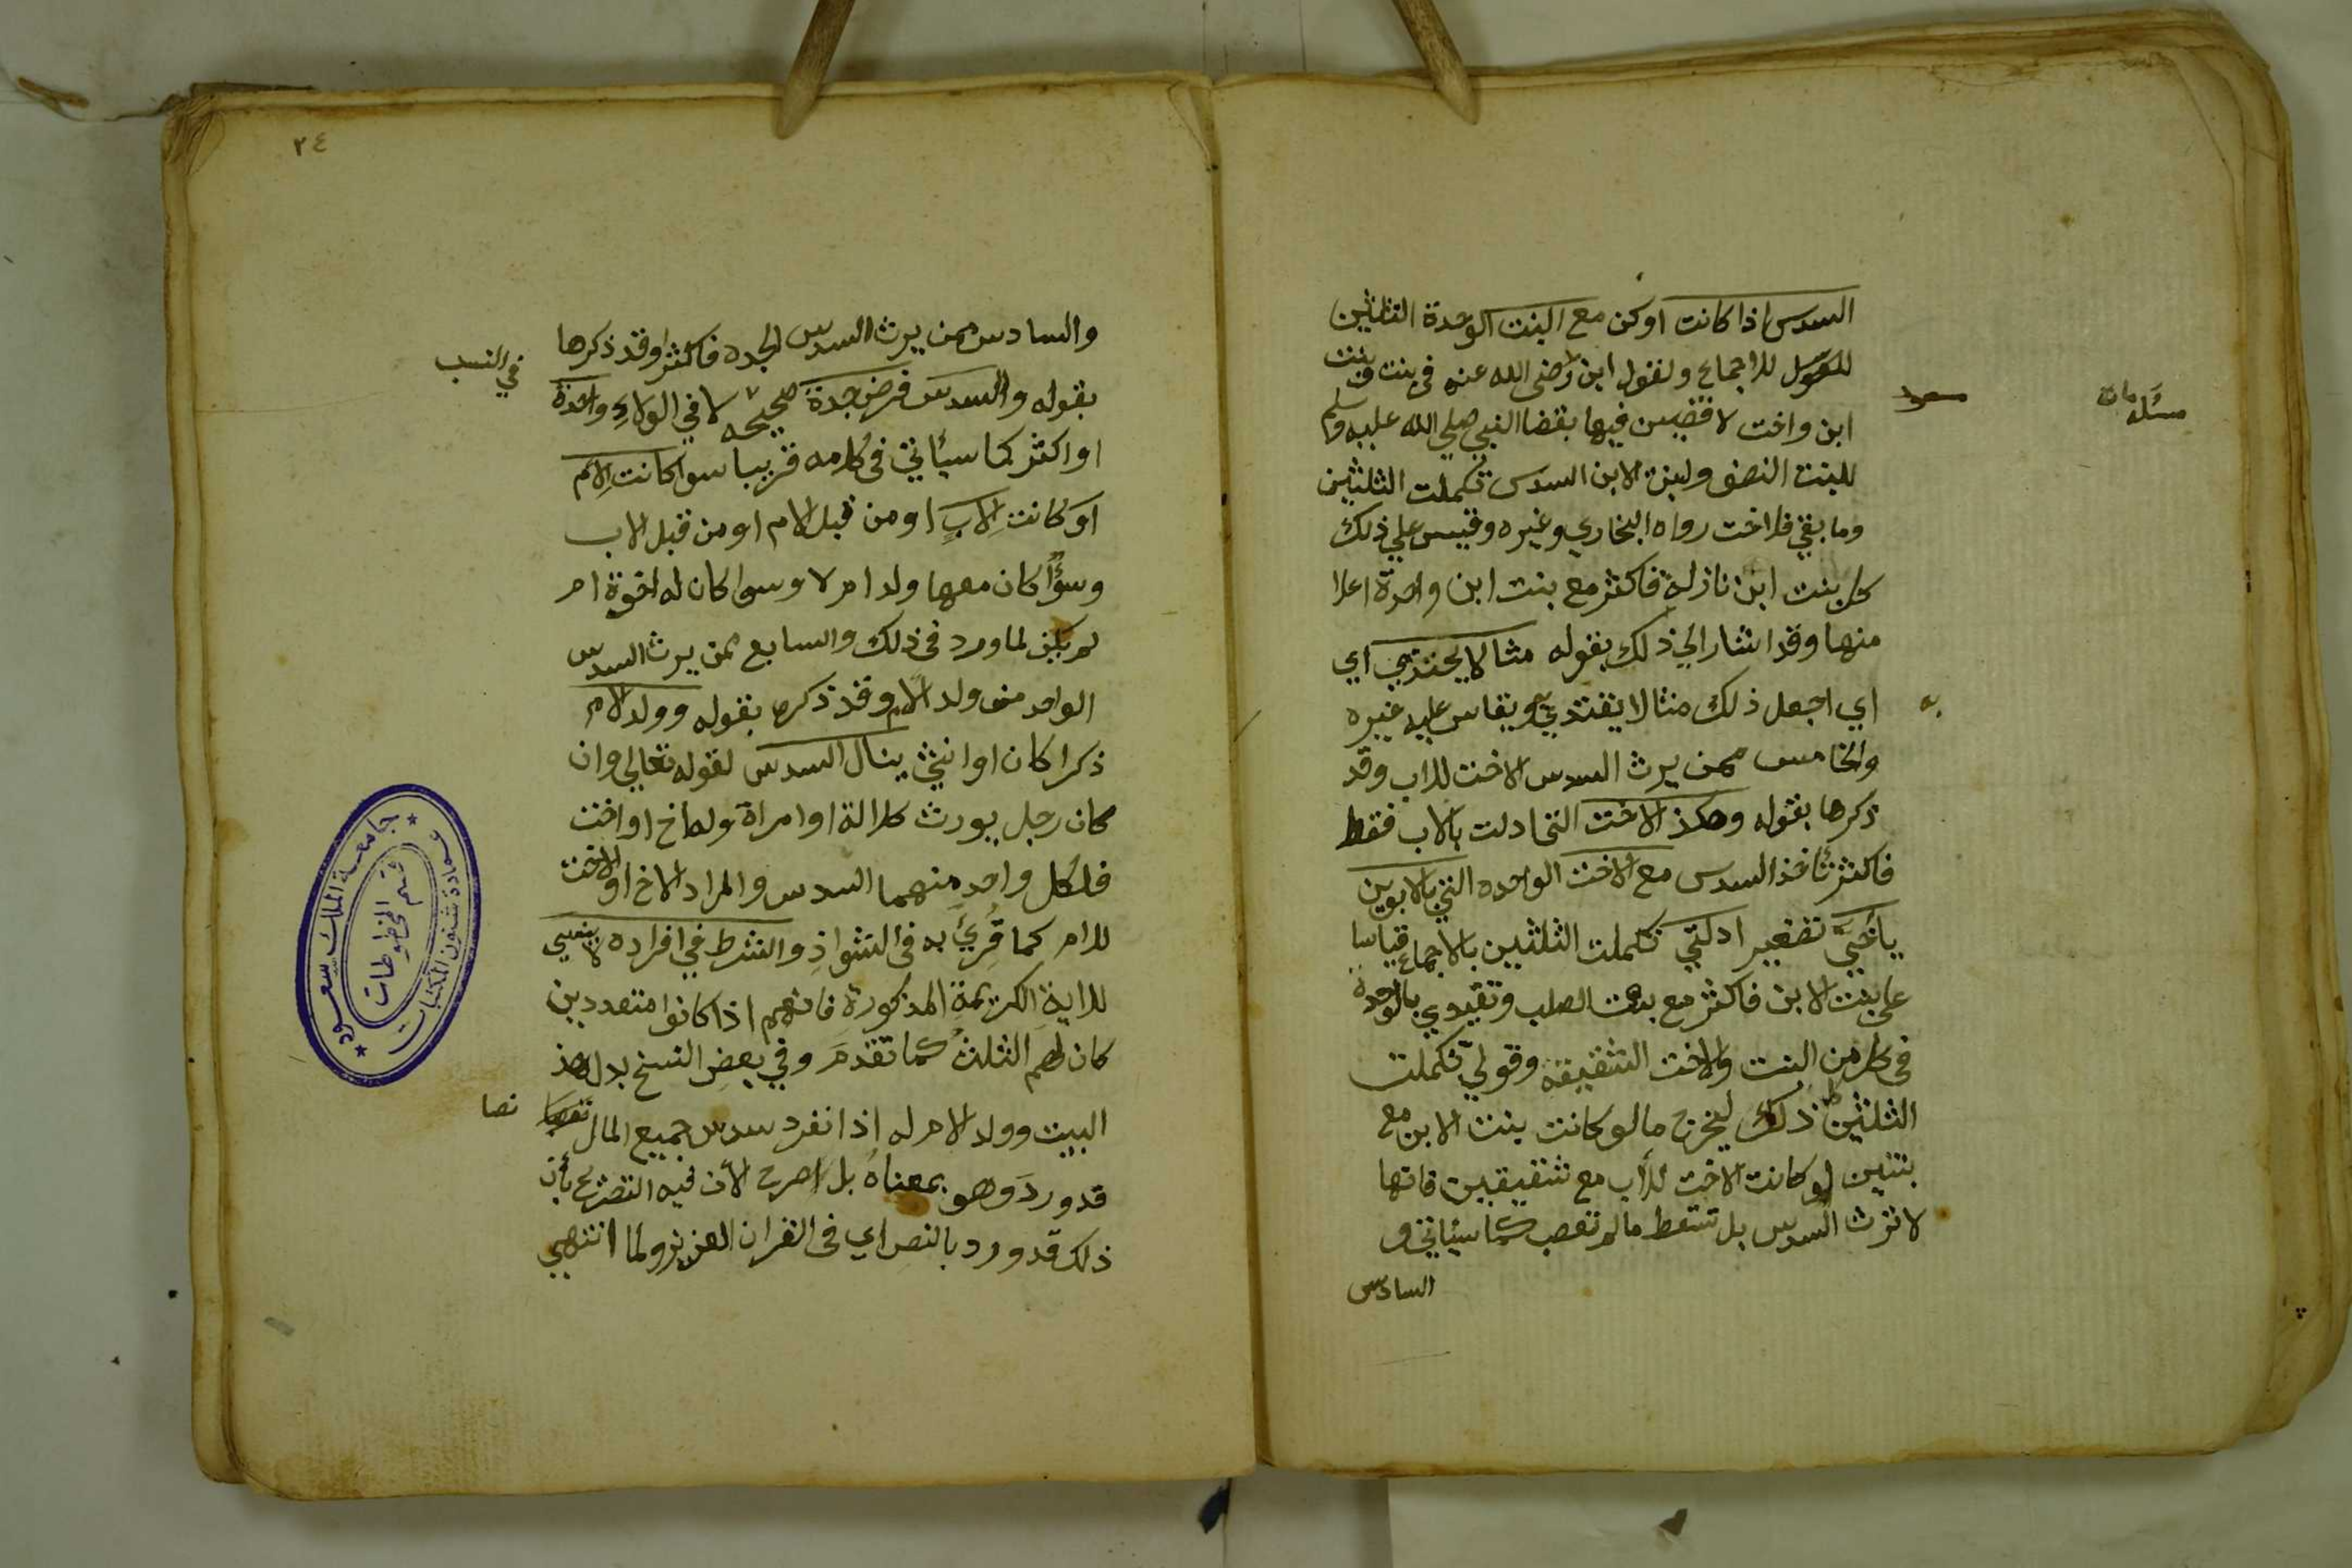 السدس اذا كانت او كن مع البنت الوحدة الثلثين
للاجماع ولقول ابن رضي الله عنه في بنت وبنت
مسعود
مسئله
ابن واخت لاقضين فيها بقضا النبي صلي الله عليه وسلم
للبنت النصف ولبنت الابن السدس تكملت الثلثين
وما بقي فللاخت رواه البخاري وغيره وقيس علي ذلك
كل بنت ابن نازلة فاكثر مع بنت ابن واحدة اعلا
منها وقد اشار الي ذلك بقوله مثالا يحتذي اي
اي اجعل ذلك مثالا يقتدي ويقاس عليه غيره
به
والخامس ممن يرث السدس الاخت للاب وقد
ذكرها بقوله وهكذ الاخت التي ادلت بالاب فقط
فاكثر تأخذ السدس مع الاخت الواحده التي بالابوين
يا أخيَّ تصغير ادلتي تكملت الثلثين بالاجماع قياسا
علي بنت الابن فاكثر مع بنت الصلب وتقيدي بالوحدة
في كل من البنت والاخت الشقيقة وقولي تكملت
الثلثين ذلك ليخرج مالو كانت بنت الابن مع
بنتين او كانت الاخت للاب مع شقيقين فانها
لا ترث السدس بل تسقط مالم تعصب كما سيأتي و
السادس
٢٤
والسادس ممن يرث السدس الجده فاكثر وقد ذكرها
بقوله والسدس فرض جدة صحيحه لا في الولاء واحدة
في النسب
او اكثر كما سيأتي في كلامه قريبا سوا كانت لام
او كانت لاب او من قبل الام او من قبل الاب
وسوأ كان معها ولد ام لا وسوا كان له اخوة ام
لم يكن لما ورد في ذلك والسابع ممن يرث السدس
الواحد من ولد الام وقد ذكره بقوله وولد الام
ذكرا كان او انثي ينال السدس لقوله تعالي وان
كان رجل يورث كلالة او امراة وله اخ او اخت
فلكل واحد منهما السدس والمراد الاخ او الاخت
للام كما قريَ به في الشواذ والشرط في افراده لا ينسي
للاية الكريمة المذكورة فانهم اذا كانوا متعددين
كان لهم الثلث كما تقدم وفي بعض النسخ بدل هذ
البيت وولد الام له اذا انفرد سدس جميع المال
نصا
قد ورد وهو بمعناه بل اصرح لأن فيه التصريح بأن
ذلك قد ورد بالنص اي في القران العزيز ولما انتهي
جامعة الملك سعود
قسم المخطوطات
عمادة شئون المكتبات